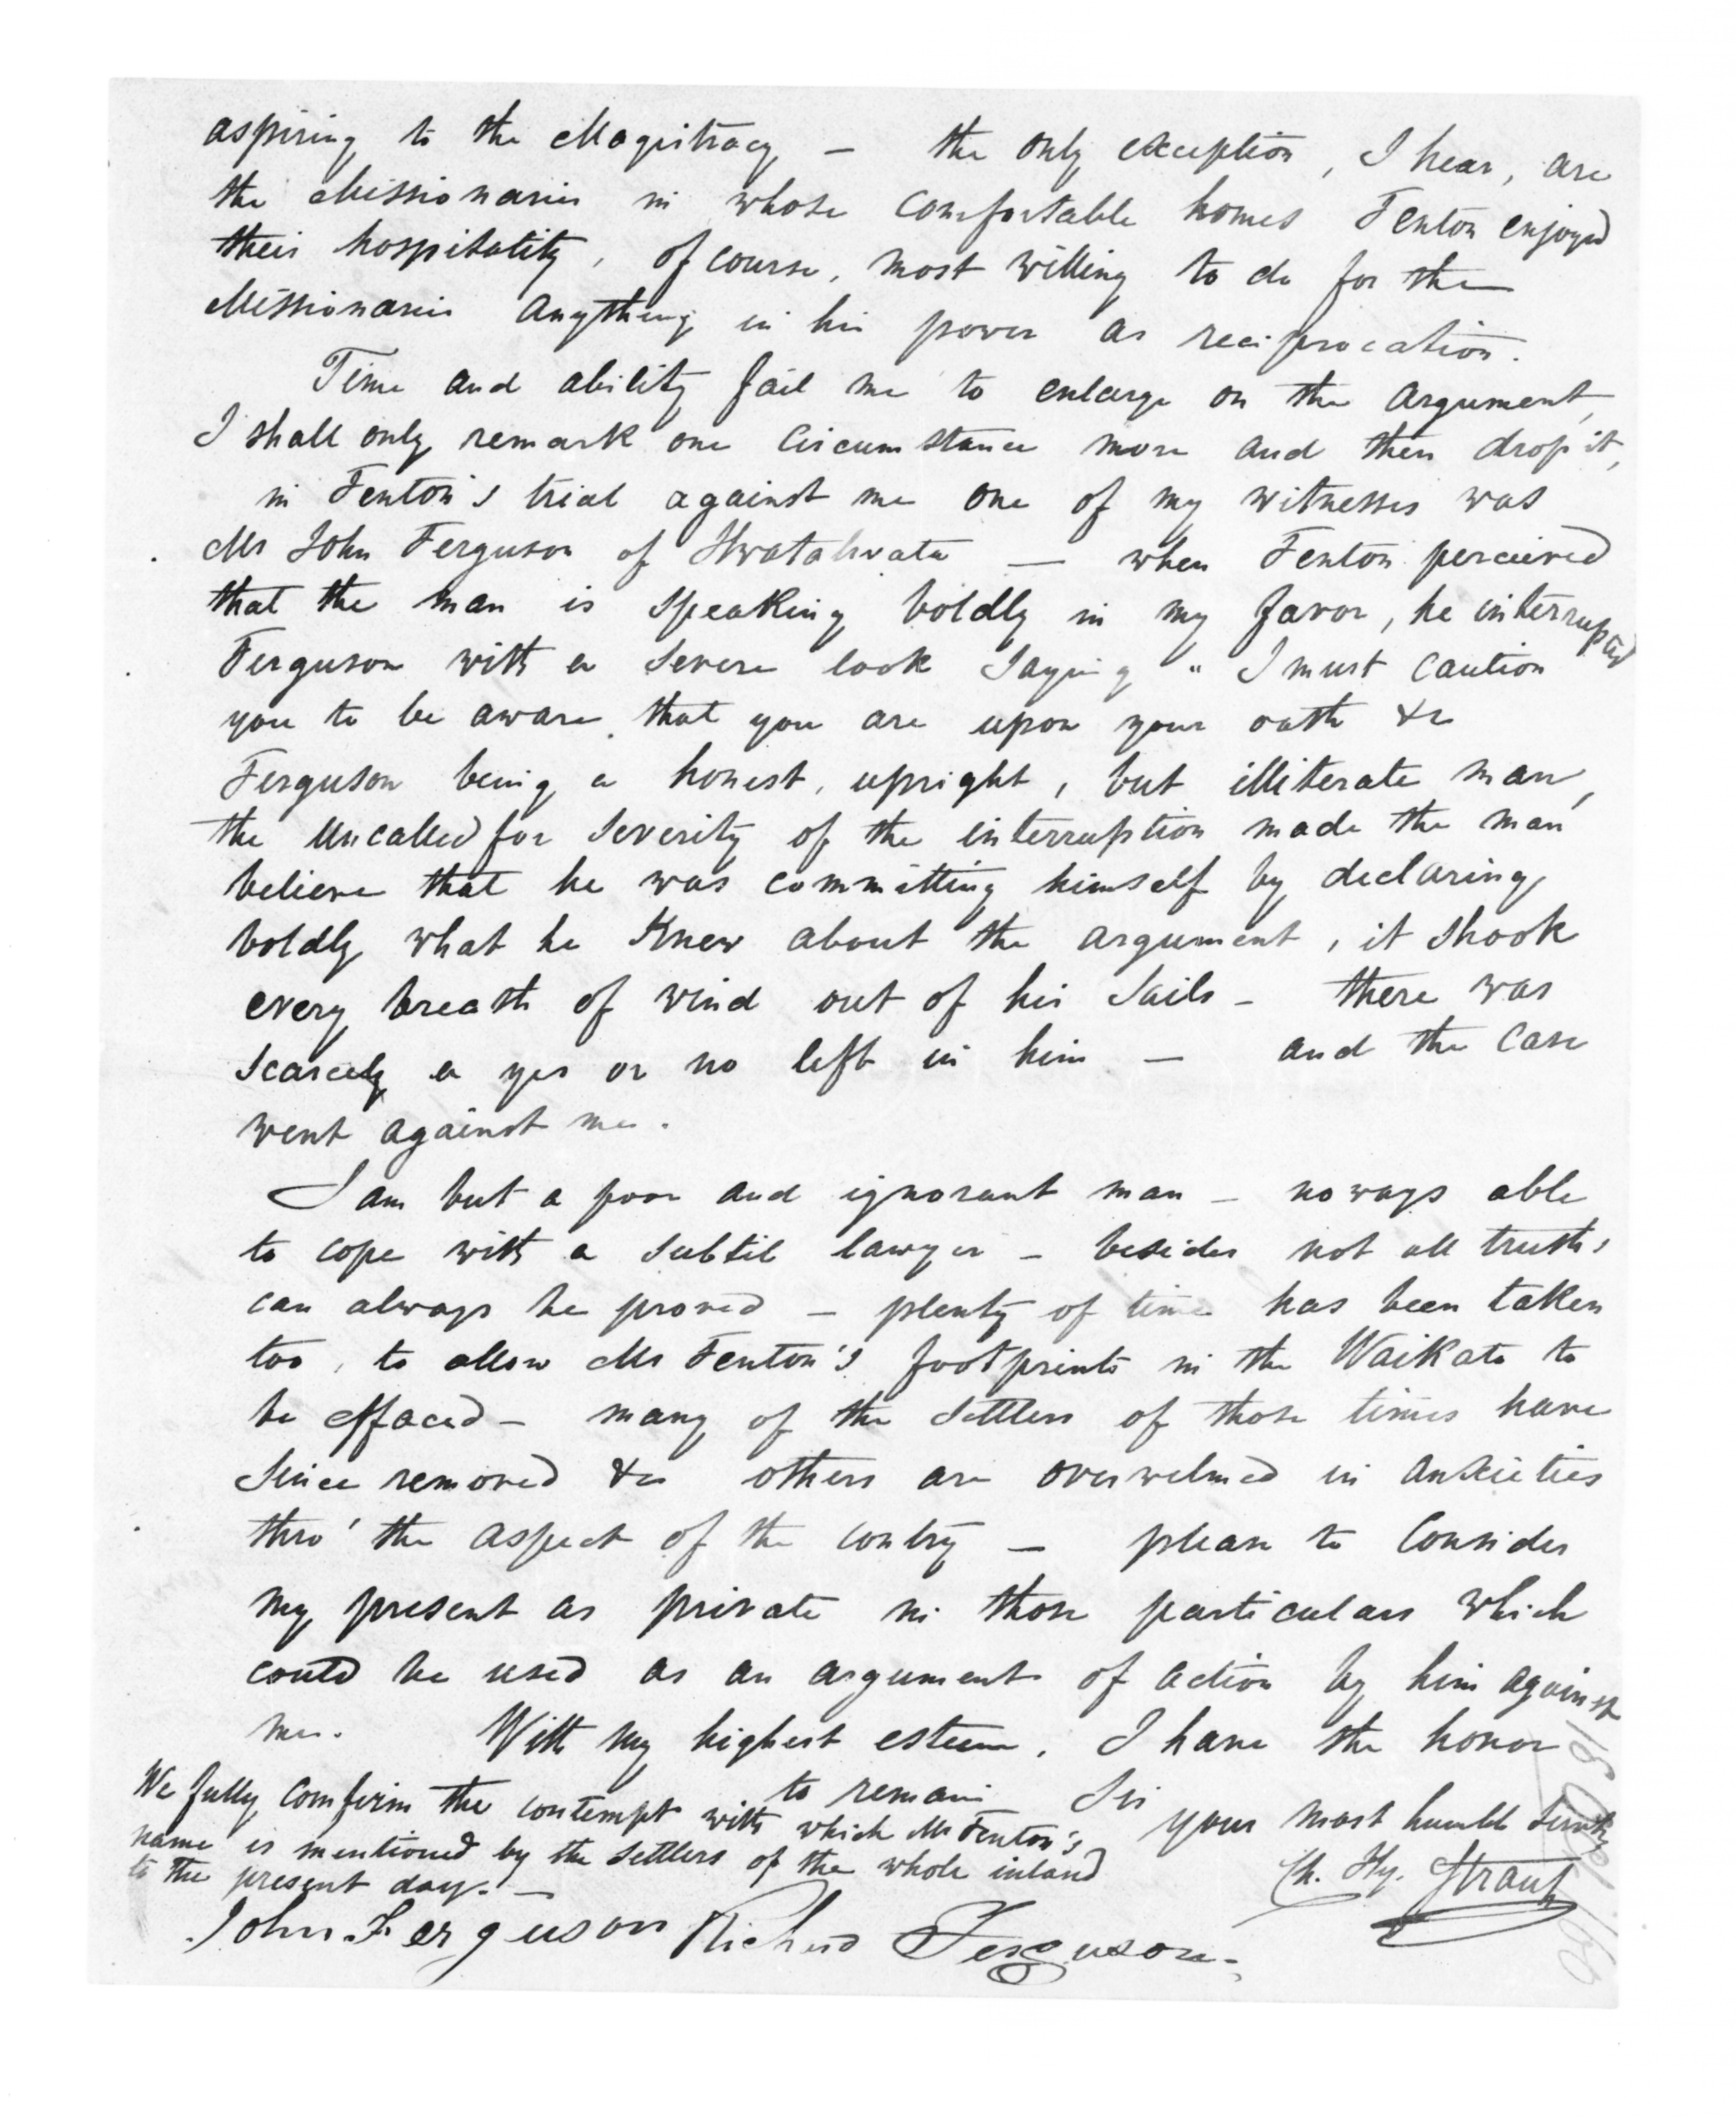 aspiring to the Magistracy — the only exception, I hear, are
the Missionaries in whose comfortable homes Fenton enjoyed
their hospitality, of course, most willing to do for the
Missionaries anything in his power as reciprocation.
Time and ability fail me to enlarge on the argument,
I shall only remark one circumstance more and then drop it,
in Fenton's trial against me one of my witnesses was
Mr John Ferguson of Kwatakwata — when Fenton perceived
that the man is speaking boldly in my favor, he interrupted
Ferguson with a severe look saying "I must caution
you to be aware that you are upon your oath &c
Ferguson being a honest, upright, but illiterate man,
the uncalled for severity of the interruption made the man
believe that he was committing himself by declaring
boldly what he knew about the argument, it shook
every breath of wind out of his sails — there was
scarcely a yes or no left in him — and the case
went against me.
I am but a poor and ignorant man — no ways able
to cope with a subtil lawyer — besides not all truths
can always be proved — plenty of time has been taken
too, to allow Mr Fenton's footprints in the Waikato to
be effaced — many of the settlers of those times have
since removed &c others are overwelmed in anxieties
thro' the aspect of the contry — please to consider
my present as private in those particulars which
could be used as an argument of action by him against
me. With my highest esteem, I have the honor
to remain Sir
your most humble Servt
Ch. Hy. Strauss
We fully comfirm the contempt with which Mr Fenton's
name is mentioned by the settlers of the whole inland
to the present day. —
John Ferguson Richard Ferguson